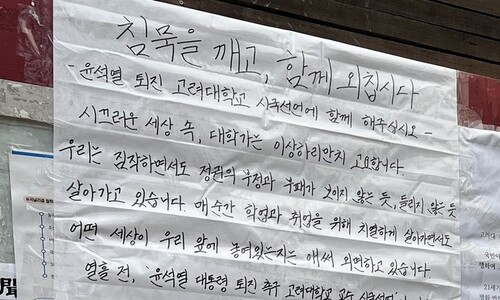 침묵을 깨고, 함께 외칩시다
- 윤석열 퇴진 고려대학교 시국선언에 함께 해주십시오 -
시끄러운 세상 속, 대학가는 이상하리만치 고요합니다.
우리는 짐작하면서도 정권의 부정과 부패가 보이지 않는 듯, 들리지 않는 듯
살아가고 있습니다. 매순간 학업과 취업을 위해 치열하게 살아가면서도
어떤 세상이 우리 앞에 놓여있는지는 애써 외면하고 있습니다.
열흘 전, '윤석열 대통령 퇴진 촉구 고려대학교 교수 시국선언'
聞